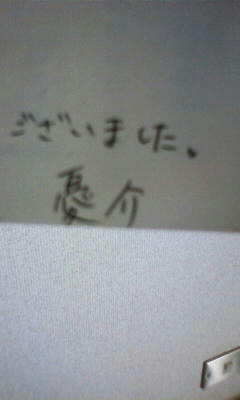 ございました。
憂介